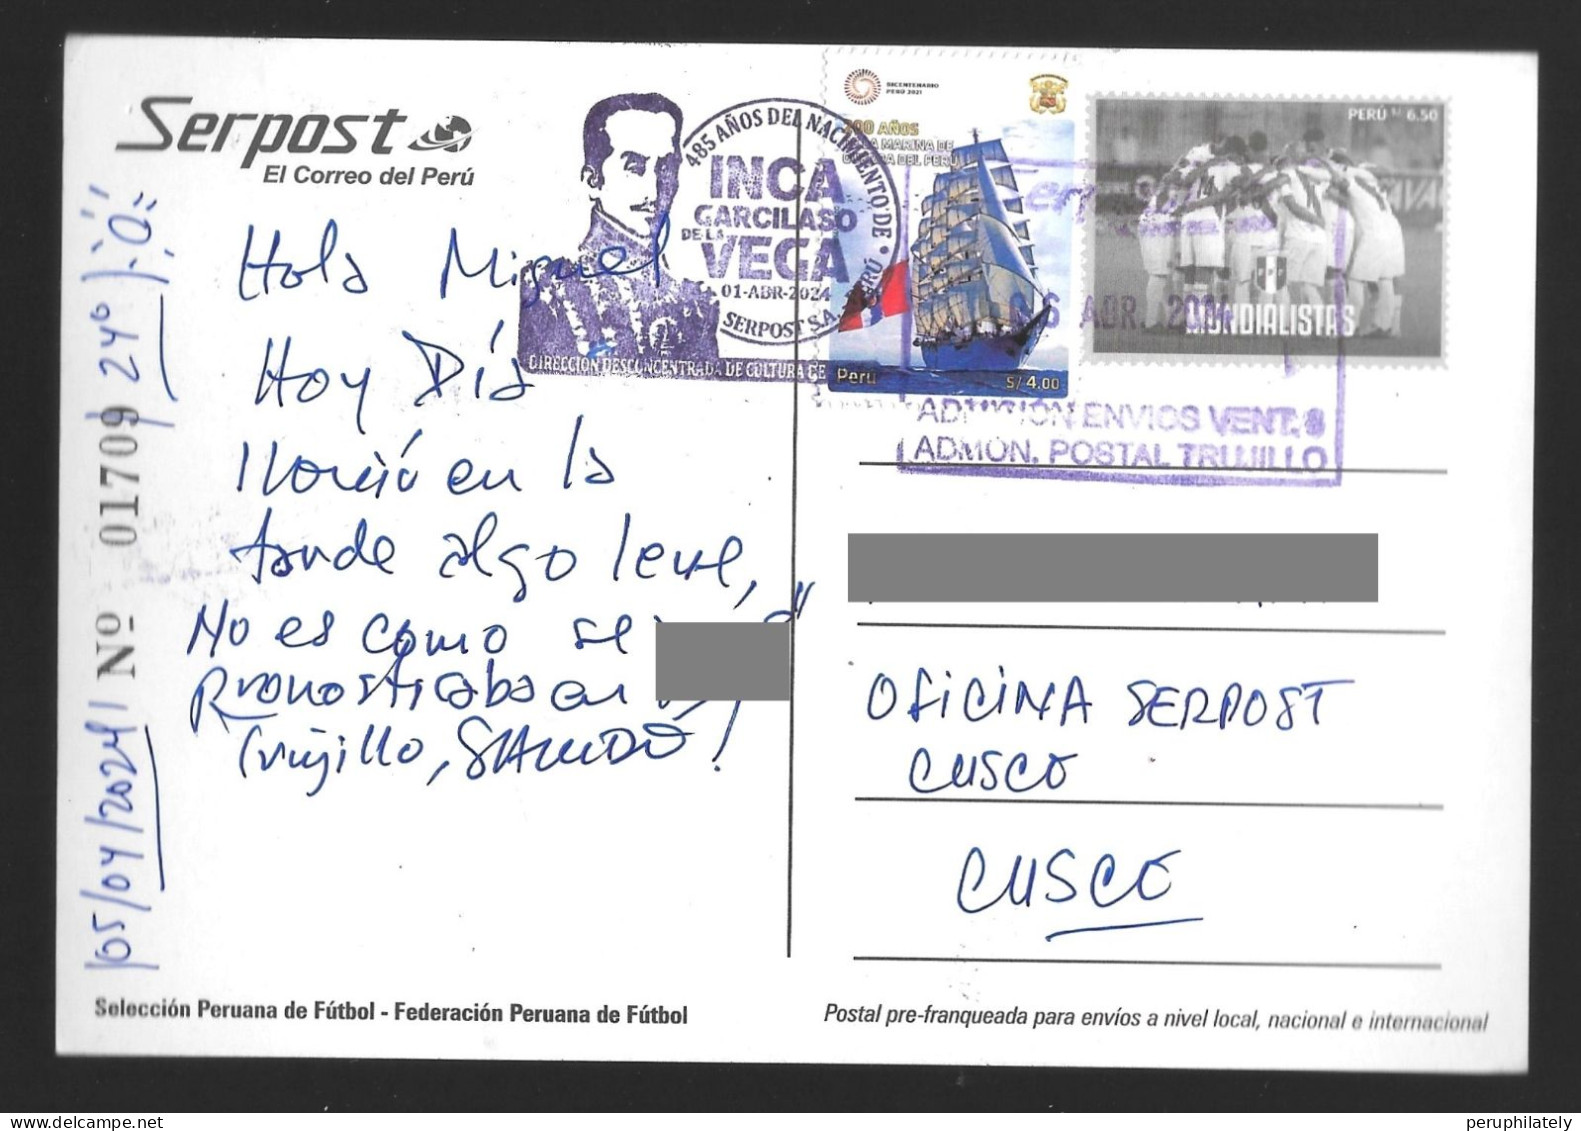 Serpost
El Correo del Perú
485 AÑOS DEL NACIMIENTO DE
INCA
GARCILASO
DE LA
VEGA
01-ABR-2024
SERPOST S.A. PERÚ
DIRECCIÓN DESCONCENTRADA DE CULTURA DE
BICENTENARIO
PERÚ 2021
200 AÑOS
LA MARINA DE
GUERRA DEL PERÚ
Perú
S/ 4.00
PERÚ S/ 6.50
MUNDIALISTAS
Serpost
06 ABR. 2024
ADMISIÓN ENVIOS VENT. 8
ADMÓN. POSTAL TRUJILLO
Hola Miguel
Hoy Día
llovió en la
tarde algo leve,
No es como se
Pronosticaba en
Trujillo, SALUDOS!
05/04/2024 24°
Nº 01709
OFICINA SERPOST
CUSCO
CUSCO
Selección Peruana de Fútbol - Federación Peruana de Fútbol
Postal pre-franqueada para envíos a nivel local, nacional e internacional
peruphilately